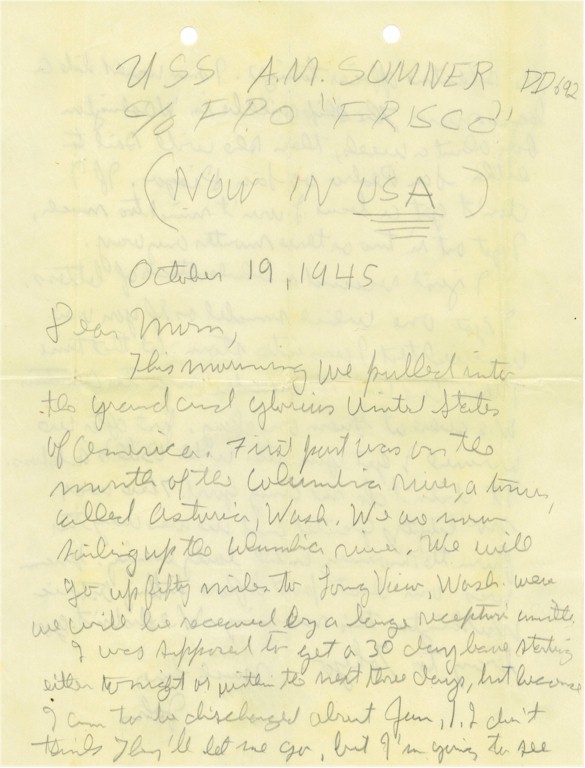 USS A.M. SUMNER DD692
c/o FPO 'FRISCO'
(NOW IN USA)
October 19, 1945
Dear Mom,
This mourning we pulled into
the grand and glorius United States
of America. First port was on the
mouth of the Columbia river, a town,
called Astoria, Wash. We are now
sailing up the Columbia river. We will
go up fifty miles to Long View, Wash. were
we will be received by a large reception
I was supposed to get a 30 day leave starting
either tonight or within the next three days, but because
I am to be discharged about Jan, 1, I don't
think They'll let me go, but I'm going to see